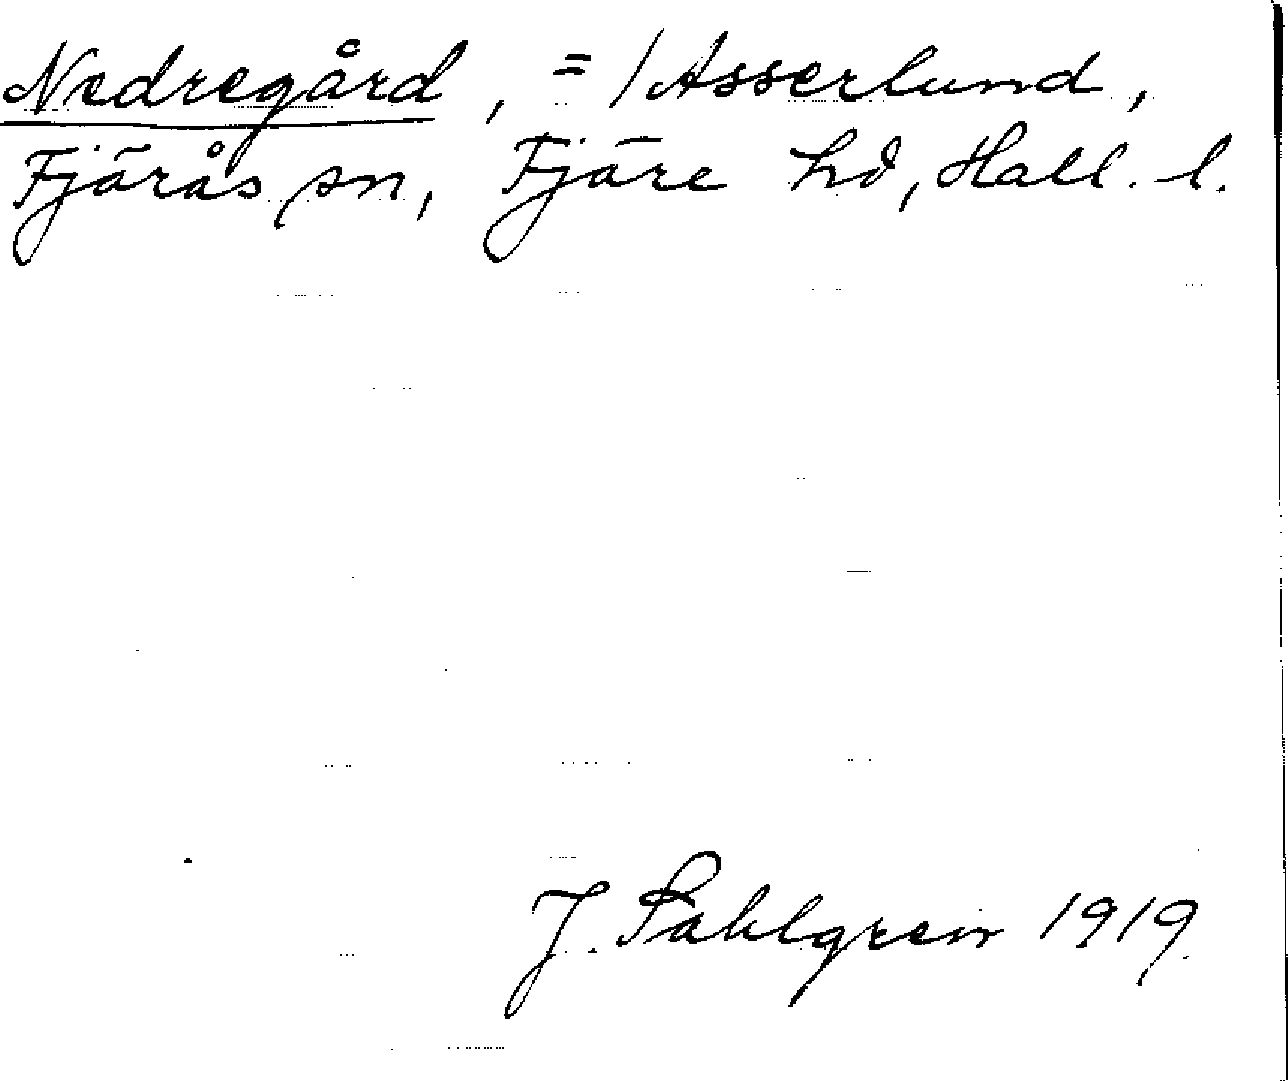 Nedregård, = / Asserlund,
Fjärås sn, Fjäre hd, Hall. l.
J. Sahlgren 1919